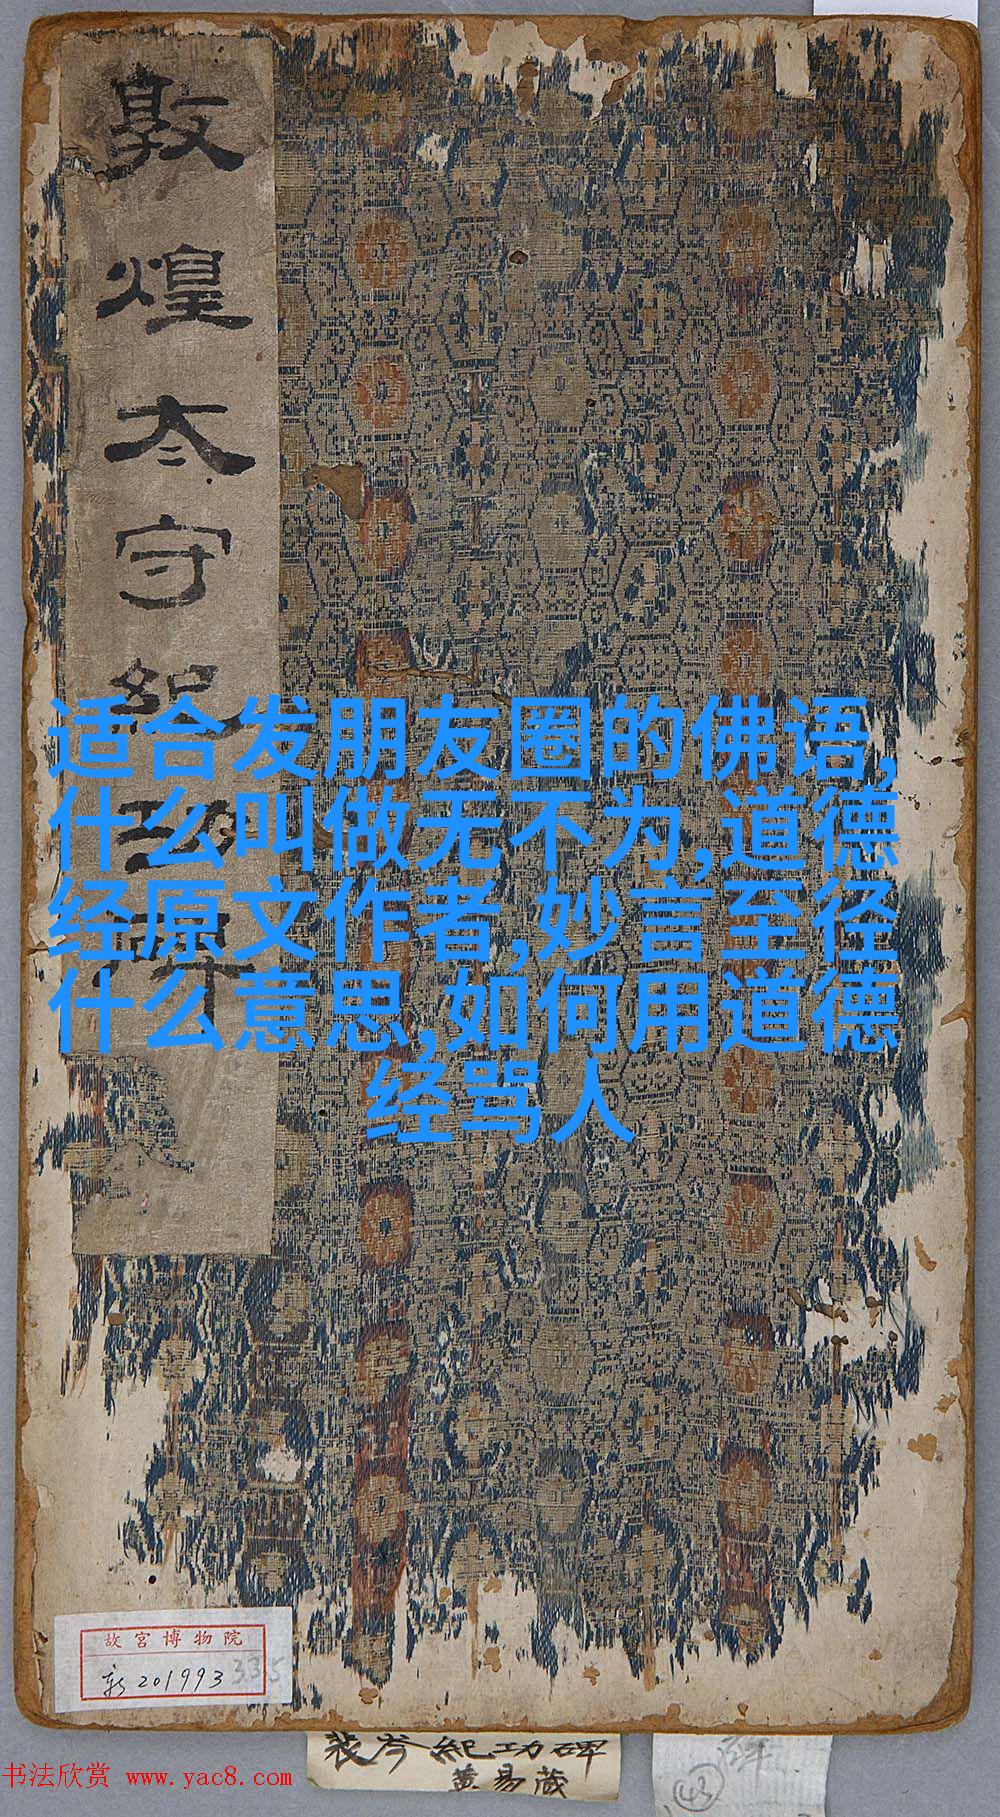 敦煌太守紀功碑
适合发朋友圈的佛语,
什么叫做无不为,道德
经原文作者,妙言至径
什么意思,如何用道德
经骂人
故宫博物院
新201993
335
裴岑紀功碑
黄易藏
43
书法欣赏 www.yac8.com